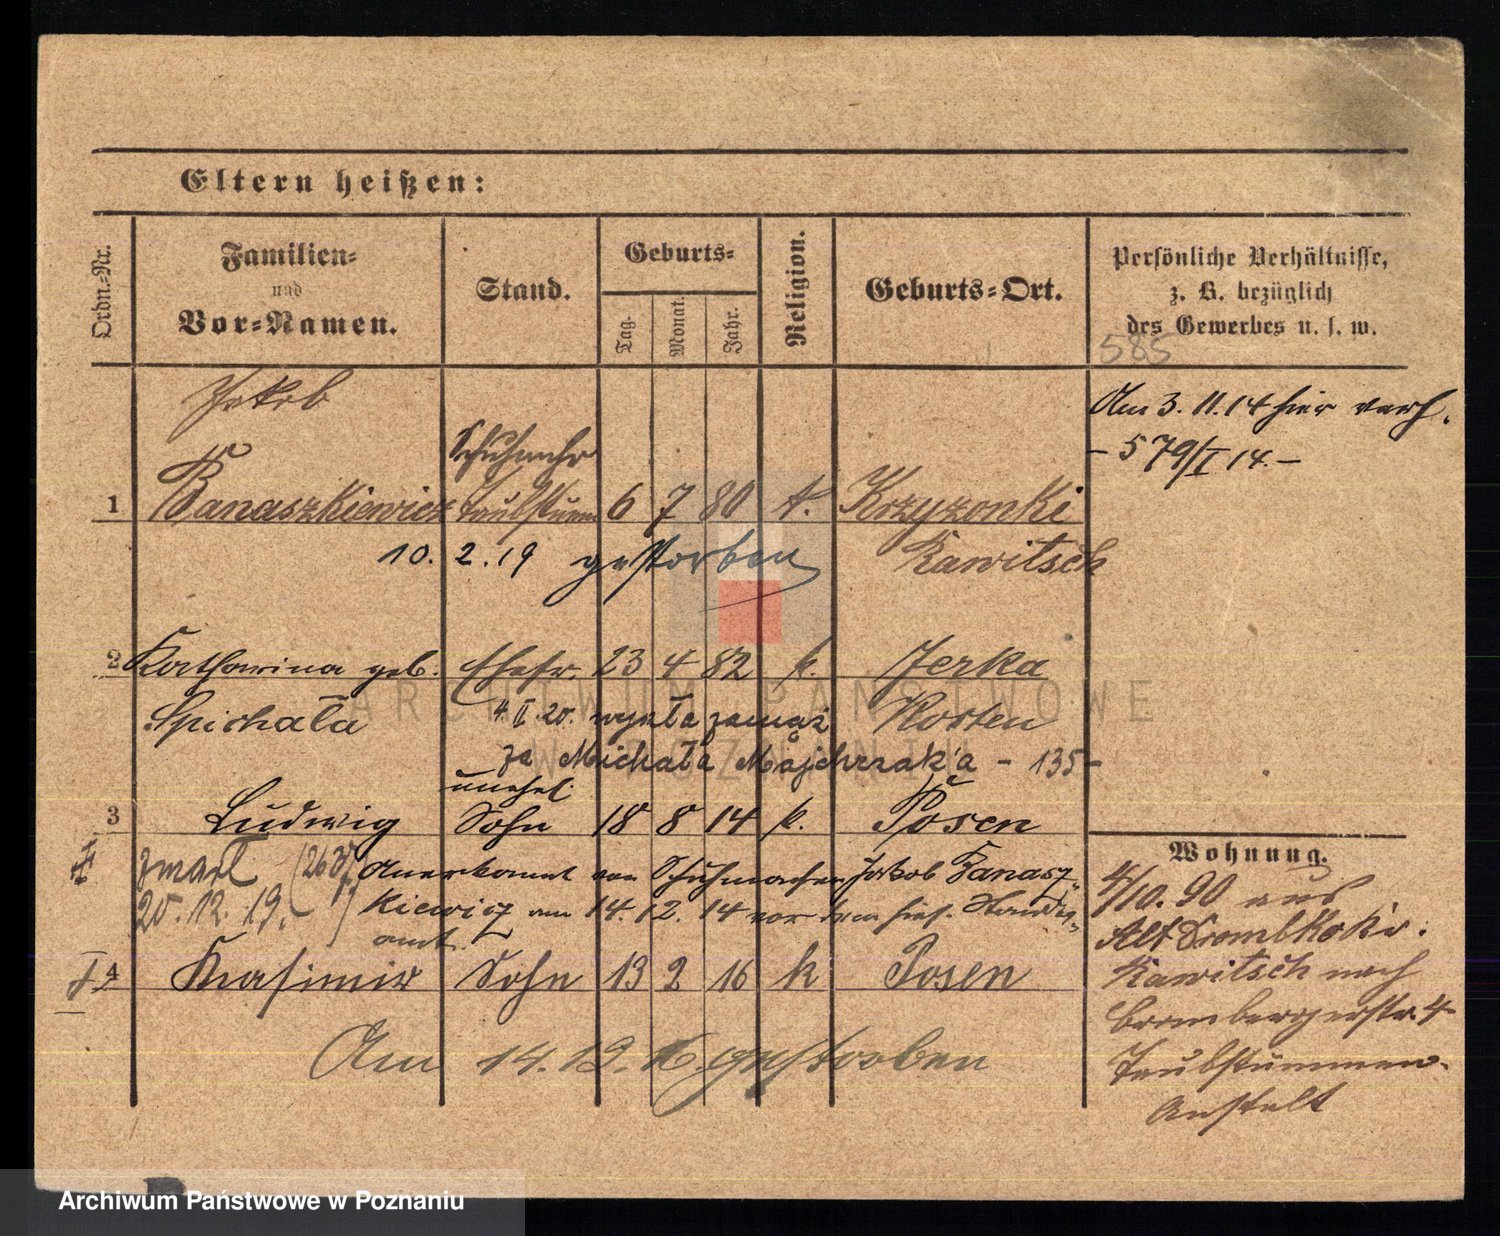 Eltern heißen:
Ordn.-Nr.
Familien-
und
Vor-Namen.
Stand.
Geburts-
Tag.
Monat.
Jahr.
Religion.
Geburts-Ort.
Persönliche Verhältnisse,
z. B. bezüglich
des Gewerbes u. s. w.
585
Jakob
Am 3. 11. 14 hier verh.
- 579/I 14. -
Schuhmchr
1 Banaszkiewicz Taubstumm 6 7 80 k. Krzyzonki
10. 2. 19 gestorben Rawitsch
2 Katharina geb. Ehefr. 23 4 82 k. Jerka
Spichała 4.II.20. wyszła zamąż Kosten
za Michała Majchrzak'a - 135 -
unehel.
3 Ludwig Sohn 18 8 14 k. Posen
zmarł Anerkannt von Schuhmacher Jakob Banasz-
20. 12. 19. kiewicz am 14. 12. 14 vor dem hies. Standes-
amt.
4 Kasimir Sohn 13 2 16 k Posen
Am 14. 12. 16. gestorben
Wohnung.
4/10. 90 aus
Alt
Rawitsch nach
Brombergerstr. 4
Taubstummen-
Anstalt
ARCHIWUM PAŃSTWOWE
W POZNANIU
Archiwum Państwowe w Poznaniu